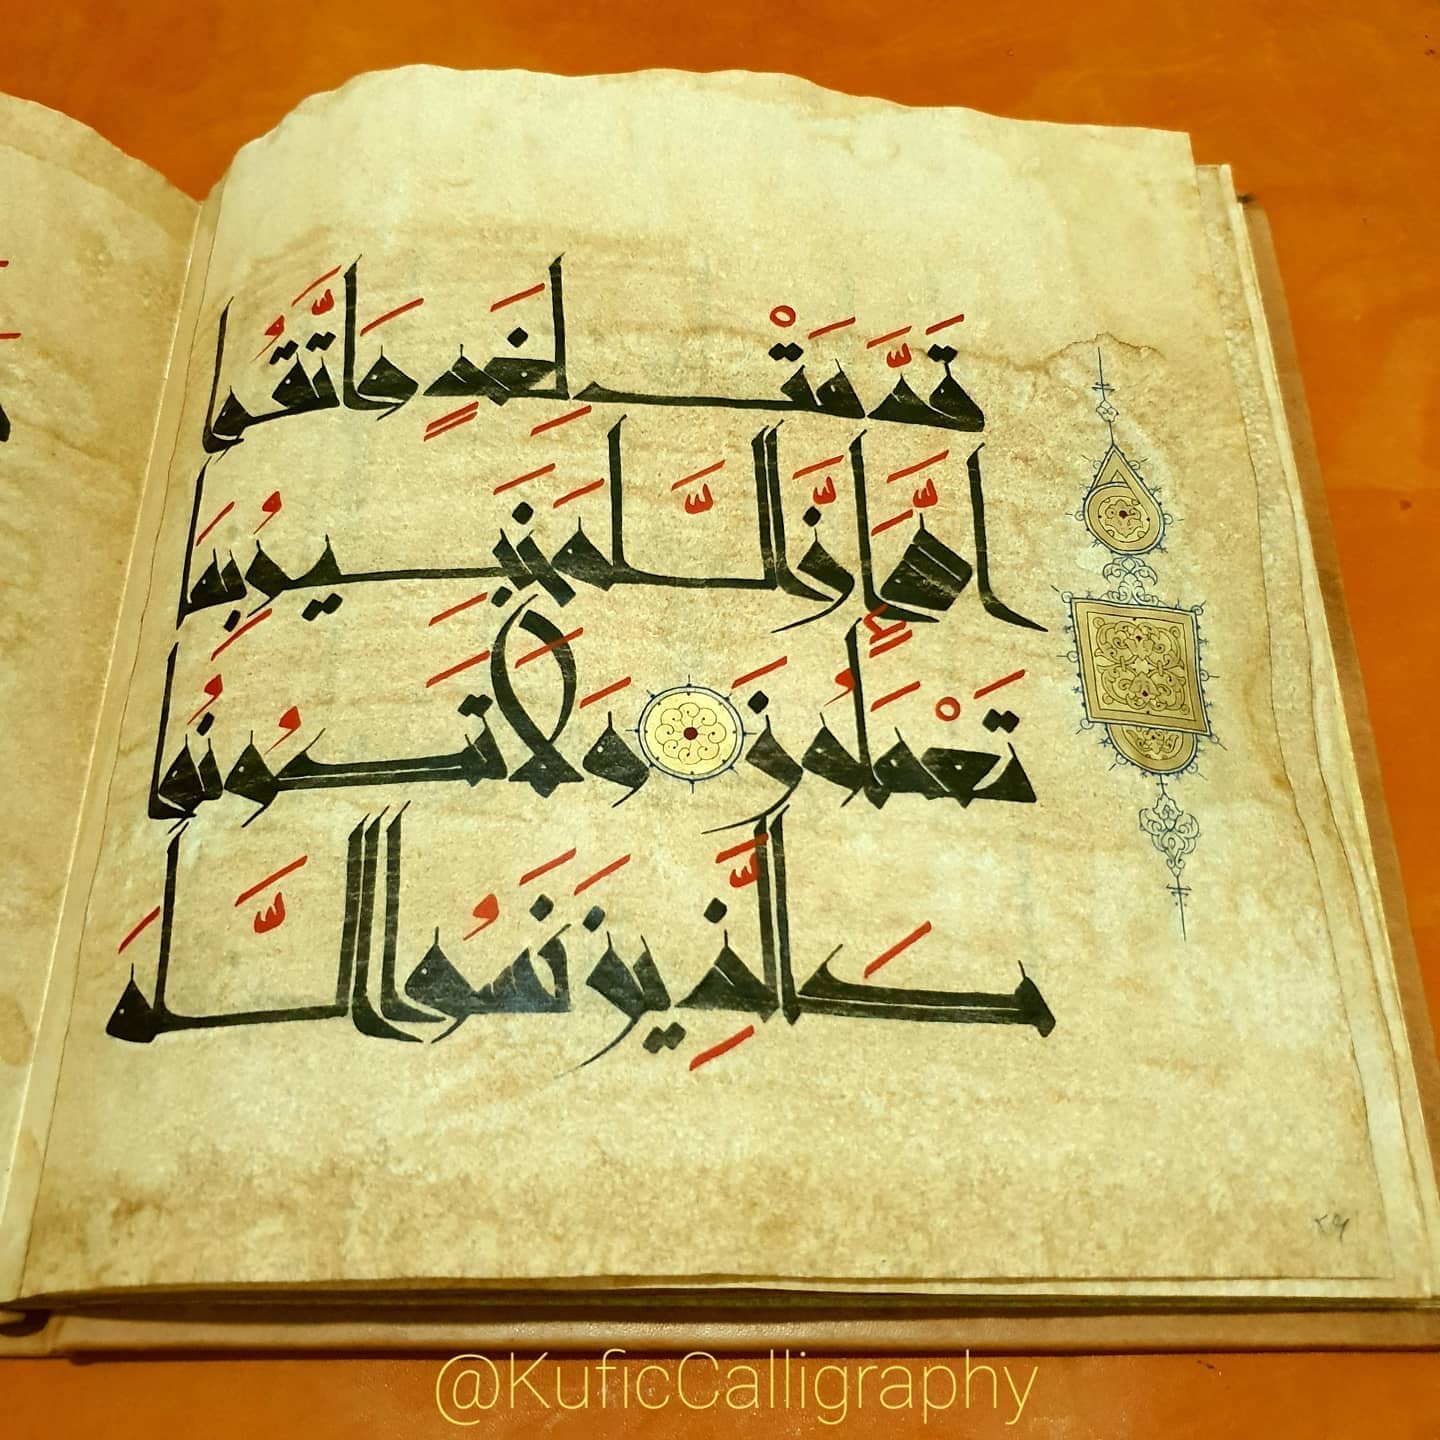 قَدَّمَتْ لِغَدٍ وَاتَّقُوا
اللَّهَ إِنَّ اللَّهَ خَبِيرٌ بِمَا
تَعْمَلُونَ وَلَا تَكُونُوا
كَالَّذِينَ نَسُوا اللَّهَ
@KuficCalligraphy